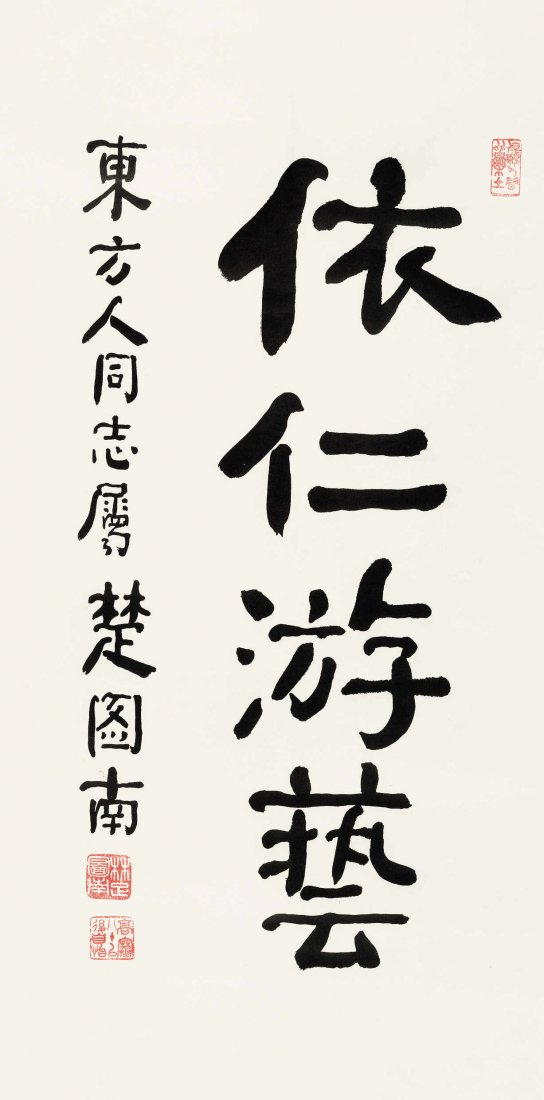 依仁游藝
東方人同志屬 楚图南
楚圖南